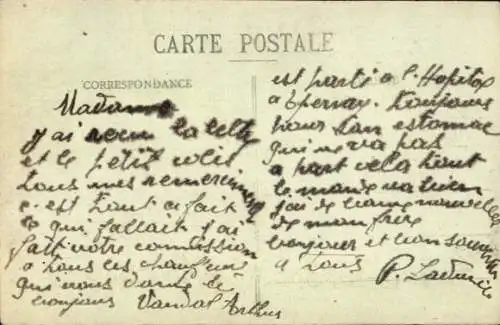 CARTE POSTALE
CORRESPONDANCE
Madame
j'ai recu la lettre
et le petit colis
tous mes remerciment
c'est tout a fait
ce qui fallait j'ai
fait votre commission
a tous les chauffeur
qui vous donne le
bonjour Vandal Arthur
est parti a l'Hopital
a Epernay. toujours
pour son estomac
qui ne va pas
a part cela tout
le monde va bien
j'ai de bonne nouvelle
de mon frere
bonjour et bon souvenir
a tous
P.